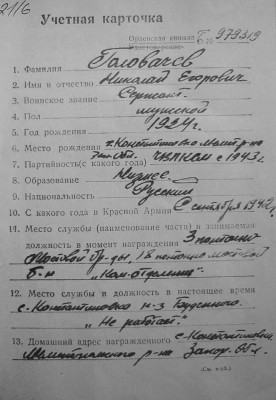 21/6
Учетная карточка
Орденская книжка Г № 979319
1. Фамилия Головачев
2. Имя и отчество Николай Егорович
3. Воинское звание Сержант.
4. Пол мужской
5. Год рождения 1924г.
6. Место рождения с. Константиновка Мелит р-на
Зап. Обл.
7. Партийность (с какого года) ЧВЛКСМ с 1943г.
8. Образование
9. Национальность Русский
10. С какого года в Красной Армии Сентября 1942г.
11. Место службы (наименование части) и занимаемая
должность в момент награждения 3
бр-ды, 18
б-н "Ком-отделения".
12. Место службы и должность в настоящее время
с. Константиновка к-з Буденного.
"Не работает."
13. Домашний адрес награжденного с. Константиновка
р-на Запор. обл.
(См. на об.)